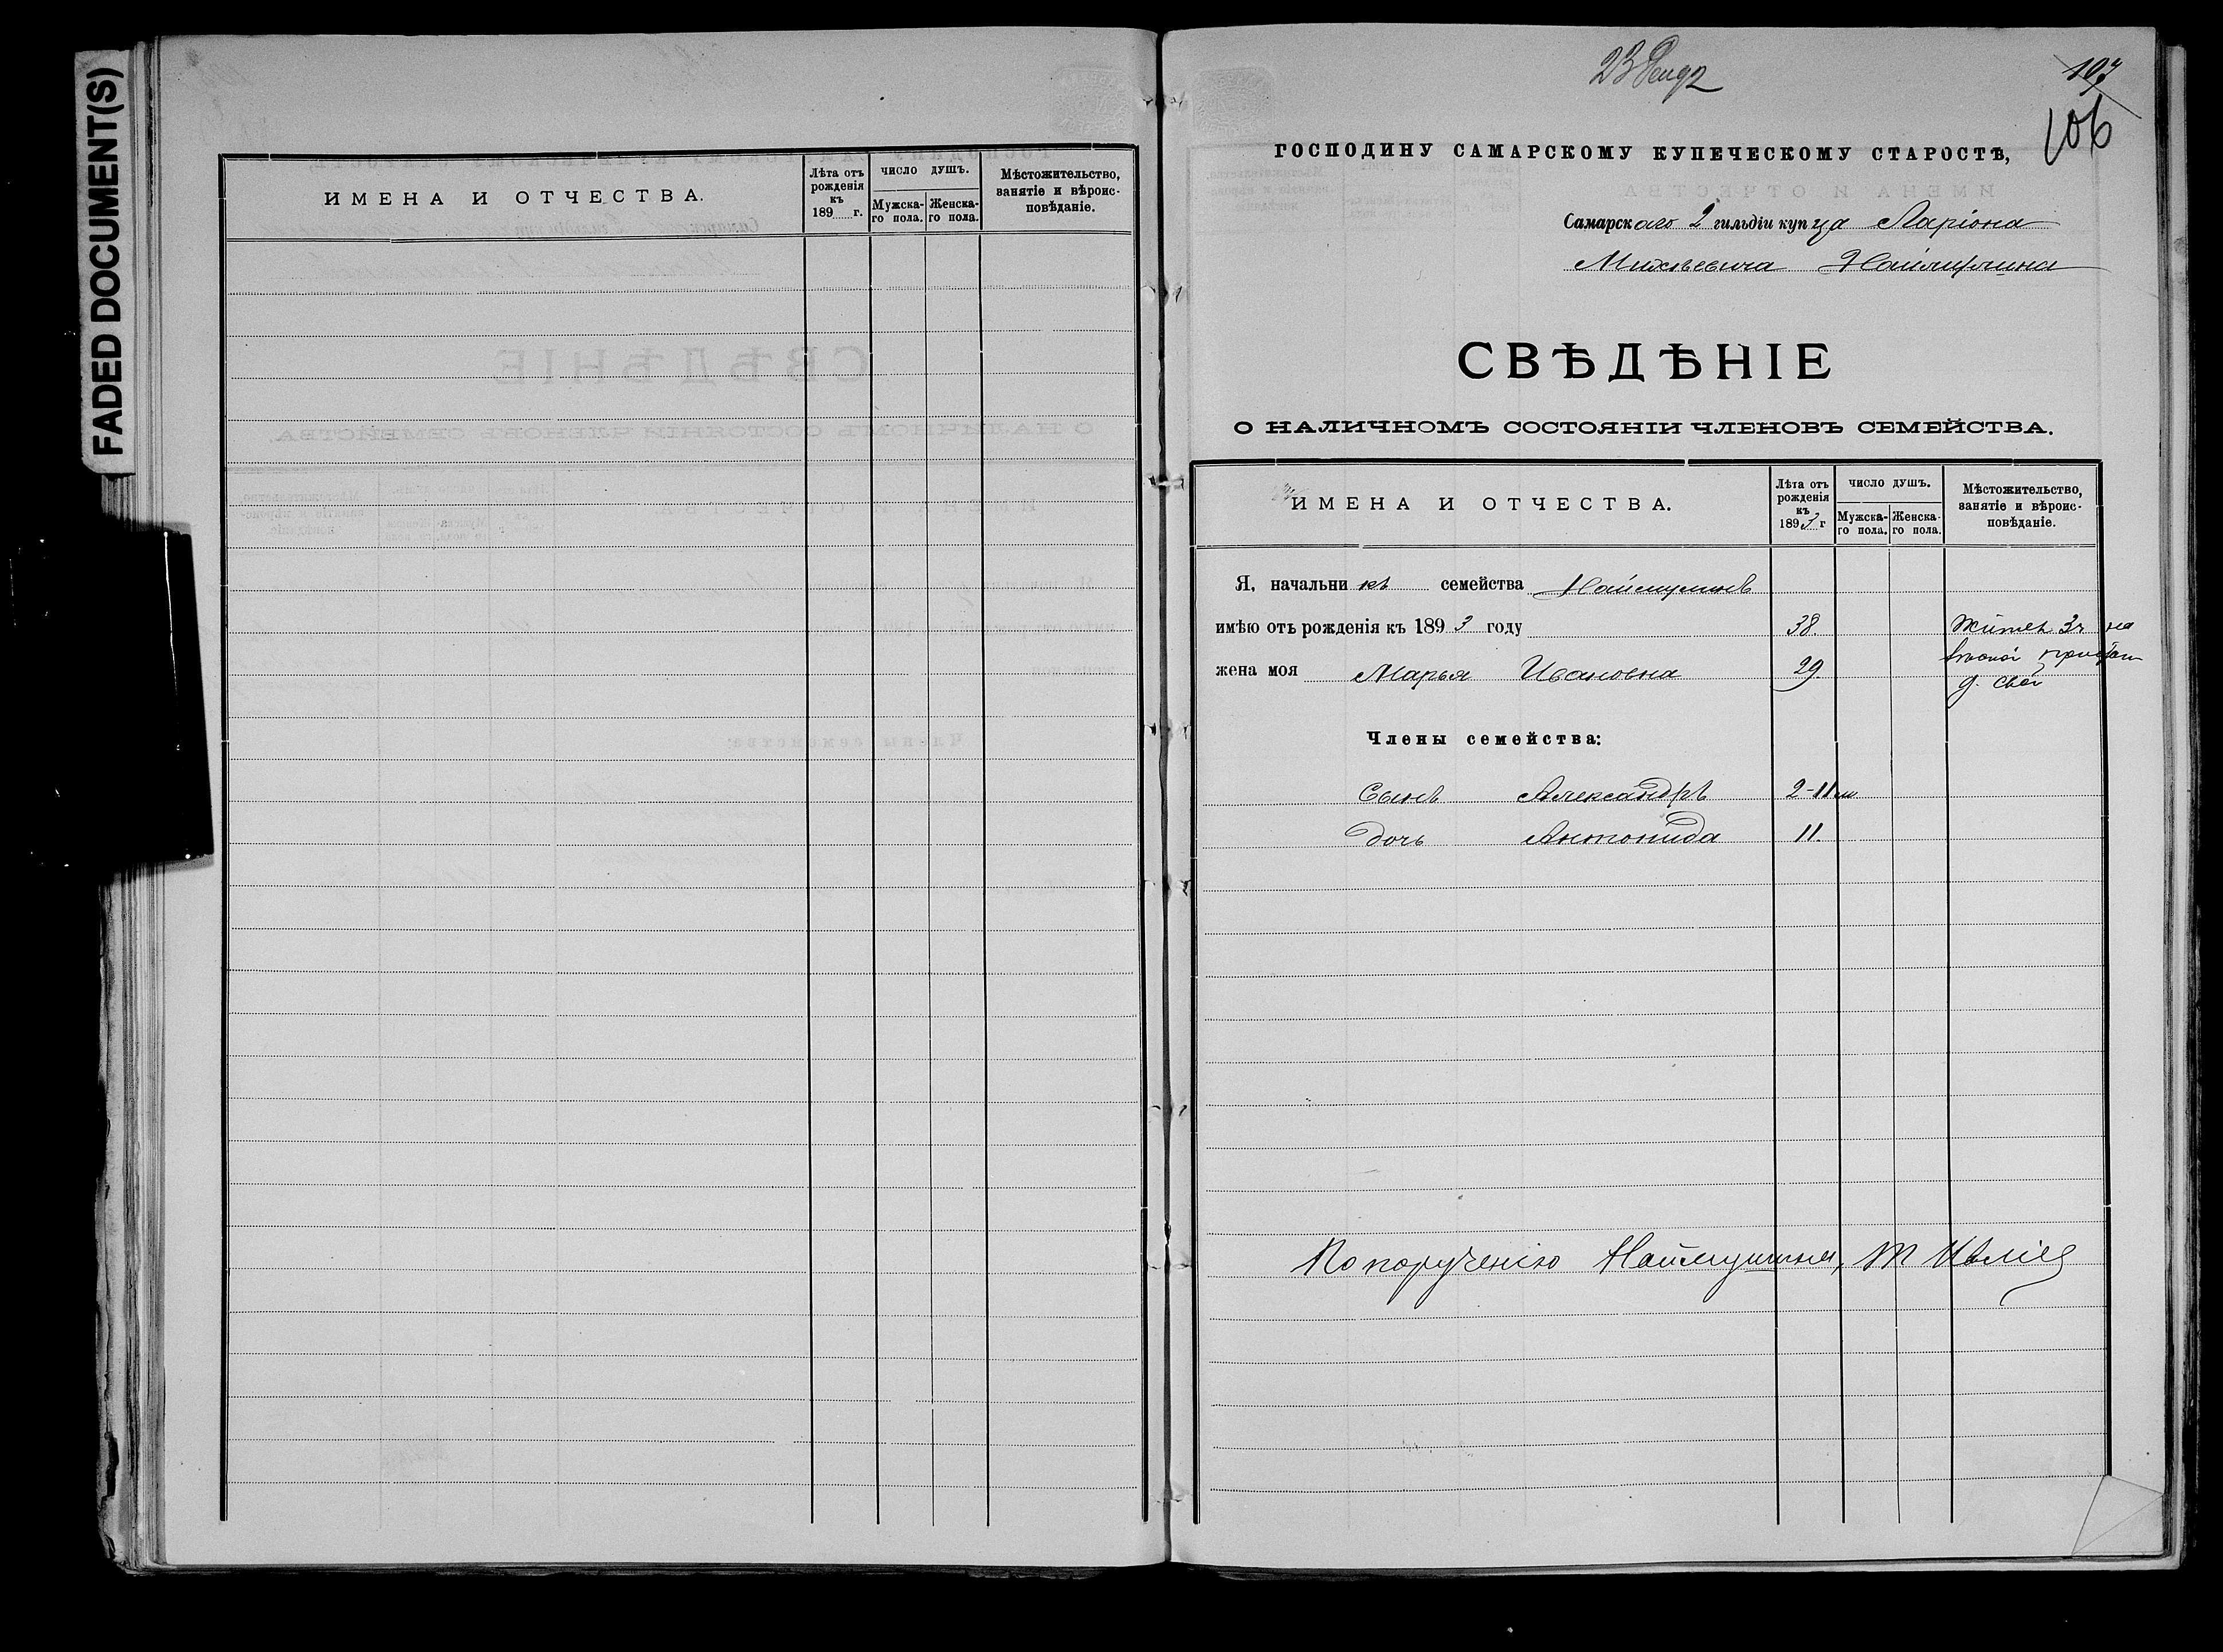 FADED DOCUMENT(S)
ИМЕНА И ОТЧЕСТВА.
Лѣта отъ рожденія къ 189 г.
ЧИСЛО ДУШЪ.
Мужска-го пола.
Женска-го пола.
Мѣстожительство, занятіе и вѣроис-повѣданіе.
23
107
106
ГОСПОДИНУ САМАРСКОМУ КУПЕЧЕСКОМУ СТАРОСТѢ,
Самарскаго 2 гильдіи купца Ларіона
Михѣевича Наймушина
СВѢДѢНІЕ
О НАЛИЧНОМЪ СОСТОЯНІИ ЧЛЕНОВЪ СЕМЕЙСТВА.
ИМЕНА И ОТЧЕСТВА.
Лѣта отъ рожденія къ 1893 г
ЧИСЛО ДУШЪ.
Мужска-го пола.
Женска-го пола.
Мѣстожительство, занятіе и вѣроис-повѣданіе.
Я, начальникъ семейства Наймушинъ
имѣю отъ рожденія къ 1893 году 38. Жител 3ч на
жена моя Марья Ивановна 29.
д. свой
Члены семейства:
Сынъ Александръ 2-11 м
Дочь Антонида 11.
По порученію Наймушина,